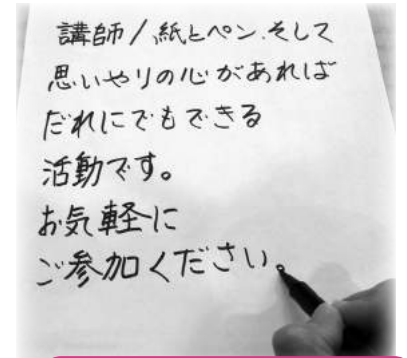 講師/紙とペン、そして
思いやりの心があれば
だれにでもできる
活動です。
お気軽に
ご参加ください。